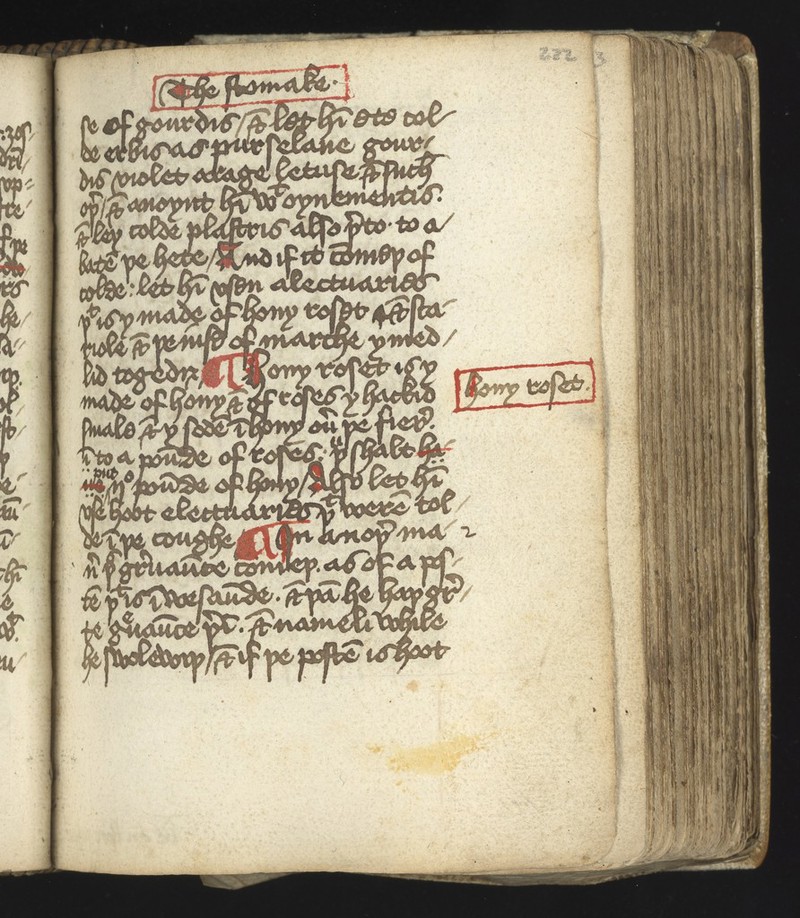 222 3
The stomake.
se of gourdis / & let hī ete col-
de erbis as purselane gour-
dis violet arage letuse & such
oþ̄ / & anoynt hī wᵗ oynementis.
& ley colde plastris also þ̄to. to a-
batē þe hete / And if it comeþ of
colde: let hī vsen alectuaries
þᵗ is y made of hony roset & sta-
& þe iuse of marche y med-
lid togedir ¶ Hony roset is y
made of hony & of roses y hackid
smale & y sodē ī hony ou̅ þe fier̄.
ī to a poūde of roses. þᵘ shalt ha-
ue put ijᵒ poūde of hony / Also let hī
vse hoot electuaries þᵗ werē col-
de ī þe coughe ¶ In anoþ̄ ma-
n̄ þⁱs gr̄uaūce comeþ. as of a pos-
tē þᵗ is ī wesaūde. & þā he haþ gr̄-
te gᵉuaūce þ̄ī. & nameli while
he swolewiþ / & if þe postē is hoot
hony roset.